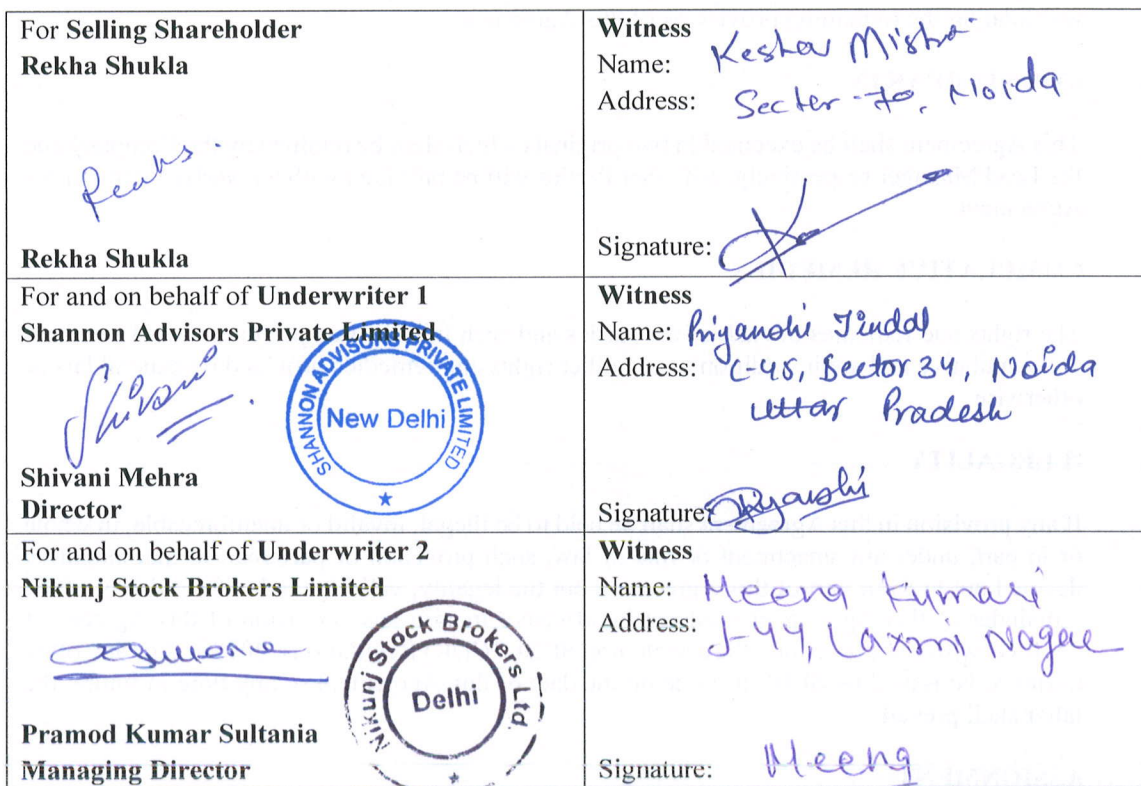 For Selling Shareholder
Rekha Shukla
Rekha Shukla
Witness
Name: Keshav Mishra
Address: Secter-70, Noida
Signature:
For and on behalf of Underwriter 1
Shannon Advisors Private Limited
Shivani
SHANNON ADVISORS PRIVATE LIMITED
New Delhi
Shivani Mehra
Director
Witness
Name: Priyanshi Jindal
Address: C-48, Sector 34, Noida
Uttar Pradesh
Signature: Priyanshi
For and on behalf of Underwriter 2
Nikunj Stock Brokers Limited
Nikunj Stock Brokers Ltd.
Delhi
Pramod Kumar Sultania
Managing Director
Witness
Name: Meena Kumari
Address: J-44, Laxmi Nagar
Signature: Meena